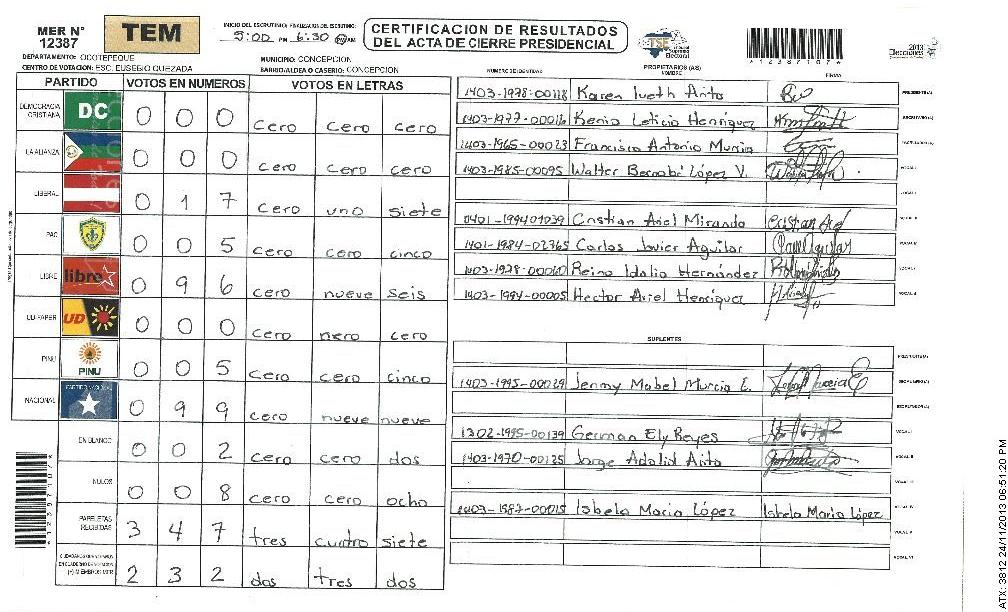 MER N° 12387
TEM
INICIO DEL ESCRUTINIO: FINALIZACION DEL ESCRUTINIO:
5:00 PM 6:30 PM AM
CERTIFICACION DE RESULTADOS
DEL ACTA DE CIERRE PRESIDENCIAL
TSE Tribunal Supremo Electoral
*12387107*
2013 Elecciones
DEPARTAMENTO: OCOTEPEQUE
MUNICIPIO: CONCEPCION
CENTRO DE VOTACION: ESC. EUSEBIO QUEZADA
BARRIO/ALDEA O CASERIO: CONCEPCION
PARTIDO VOTOS EN NUMEROS VOTOS EN LETRAS
DEMOCRACIA CRISTIANA DC 0 0 0 cero cero cero
LA ALIANZA 0 0 0 cero cero cero
LIBERAL 0 1 7 cero uno siete
PAC 0 0 5 cero cero cinco
LIBRE libre 0 9 6 cero nueve seis
UD FAPER UD 0 0 0 cero nero cero
PINU PINU 0 0 5 cero cero cinco
NACIONAL PARTIDO NACIONAL 0 9 9 cero nueve nueve
EN BLANCO 0 0 2 cero cero dos
NULOS 0 0 8 cero cero ocho
PAPELETAS RECIBIDAS 3 4 7 tres cuatro siete
CIUDADANOS QUE VOTARON EN CUADERNO DE VOTACION (+) MIEMBROS MER 2 3 2 dos tres dos
NUMERO DE IDENTIDAD PROPIETARIOS (AS) NOMBRE FIRMA
1403-1978-00118 Karen Iveth Arita PRESIDENTE(A)
1403-1977-00016 Kenia Leticia Henriquez SECRETARIO(A)
1403-1965-00023 Francisco Antonio Murcia ESCRUTADOR(A)
1403-1985-00095 Walter Bernabé López V. VOCAL I
VOCAL II
0401-199401039 Cristian Ariel Miranda Cristian Ariel VOCAL III
1401-1984-02365 Carlos Javier Aguilar VOCAL IV
1403-1978-00060 Reina Idalia Hernández VOCAL V
1403-1994-00005 Hector Ariel Henriquez VOCAL VI
SUPLENTES
PRESIDENTE(A)
1403-1995-00029 Jenmy Mabel Murcia E. SECRETARIO(A)
ESCRUTADOR(A)
1302-1995-00139 German Ely Reyes VOCAL I
1403-1970-00125 Jorge Adalid Arita VOCAL II
VOCAL III
1403-1987-00015 Isbela Maria López Isbela Maria López VOCAL IV
VOCAL V
VOCAL VI
*12387107*
ATX: 3812 24/11/2013 06:51:20 PM